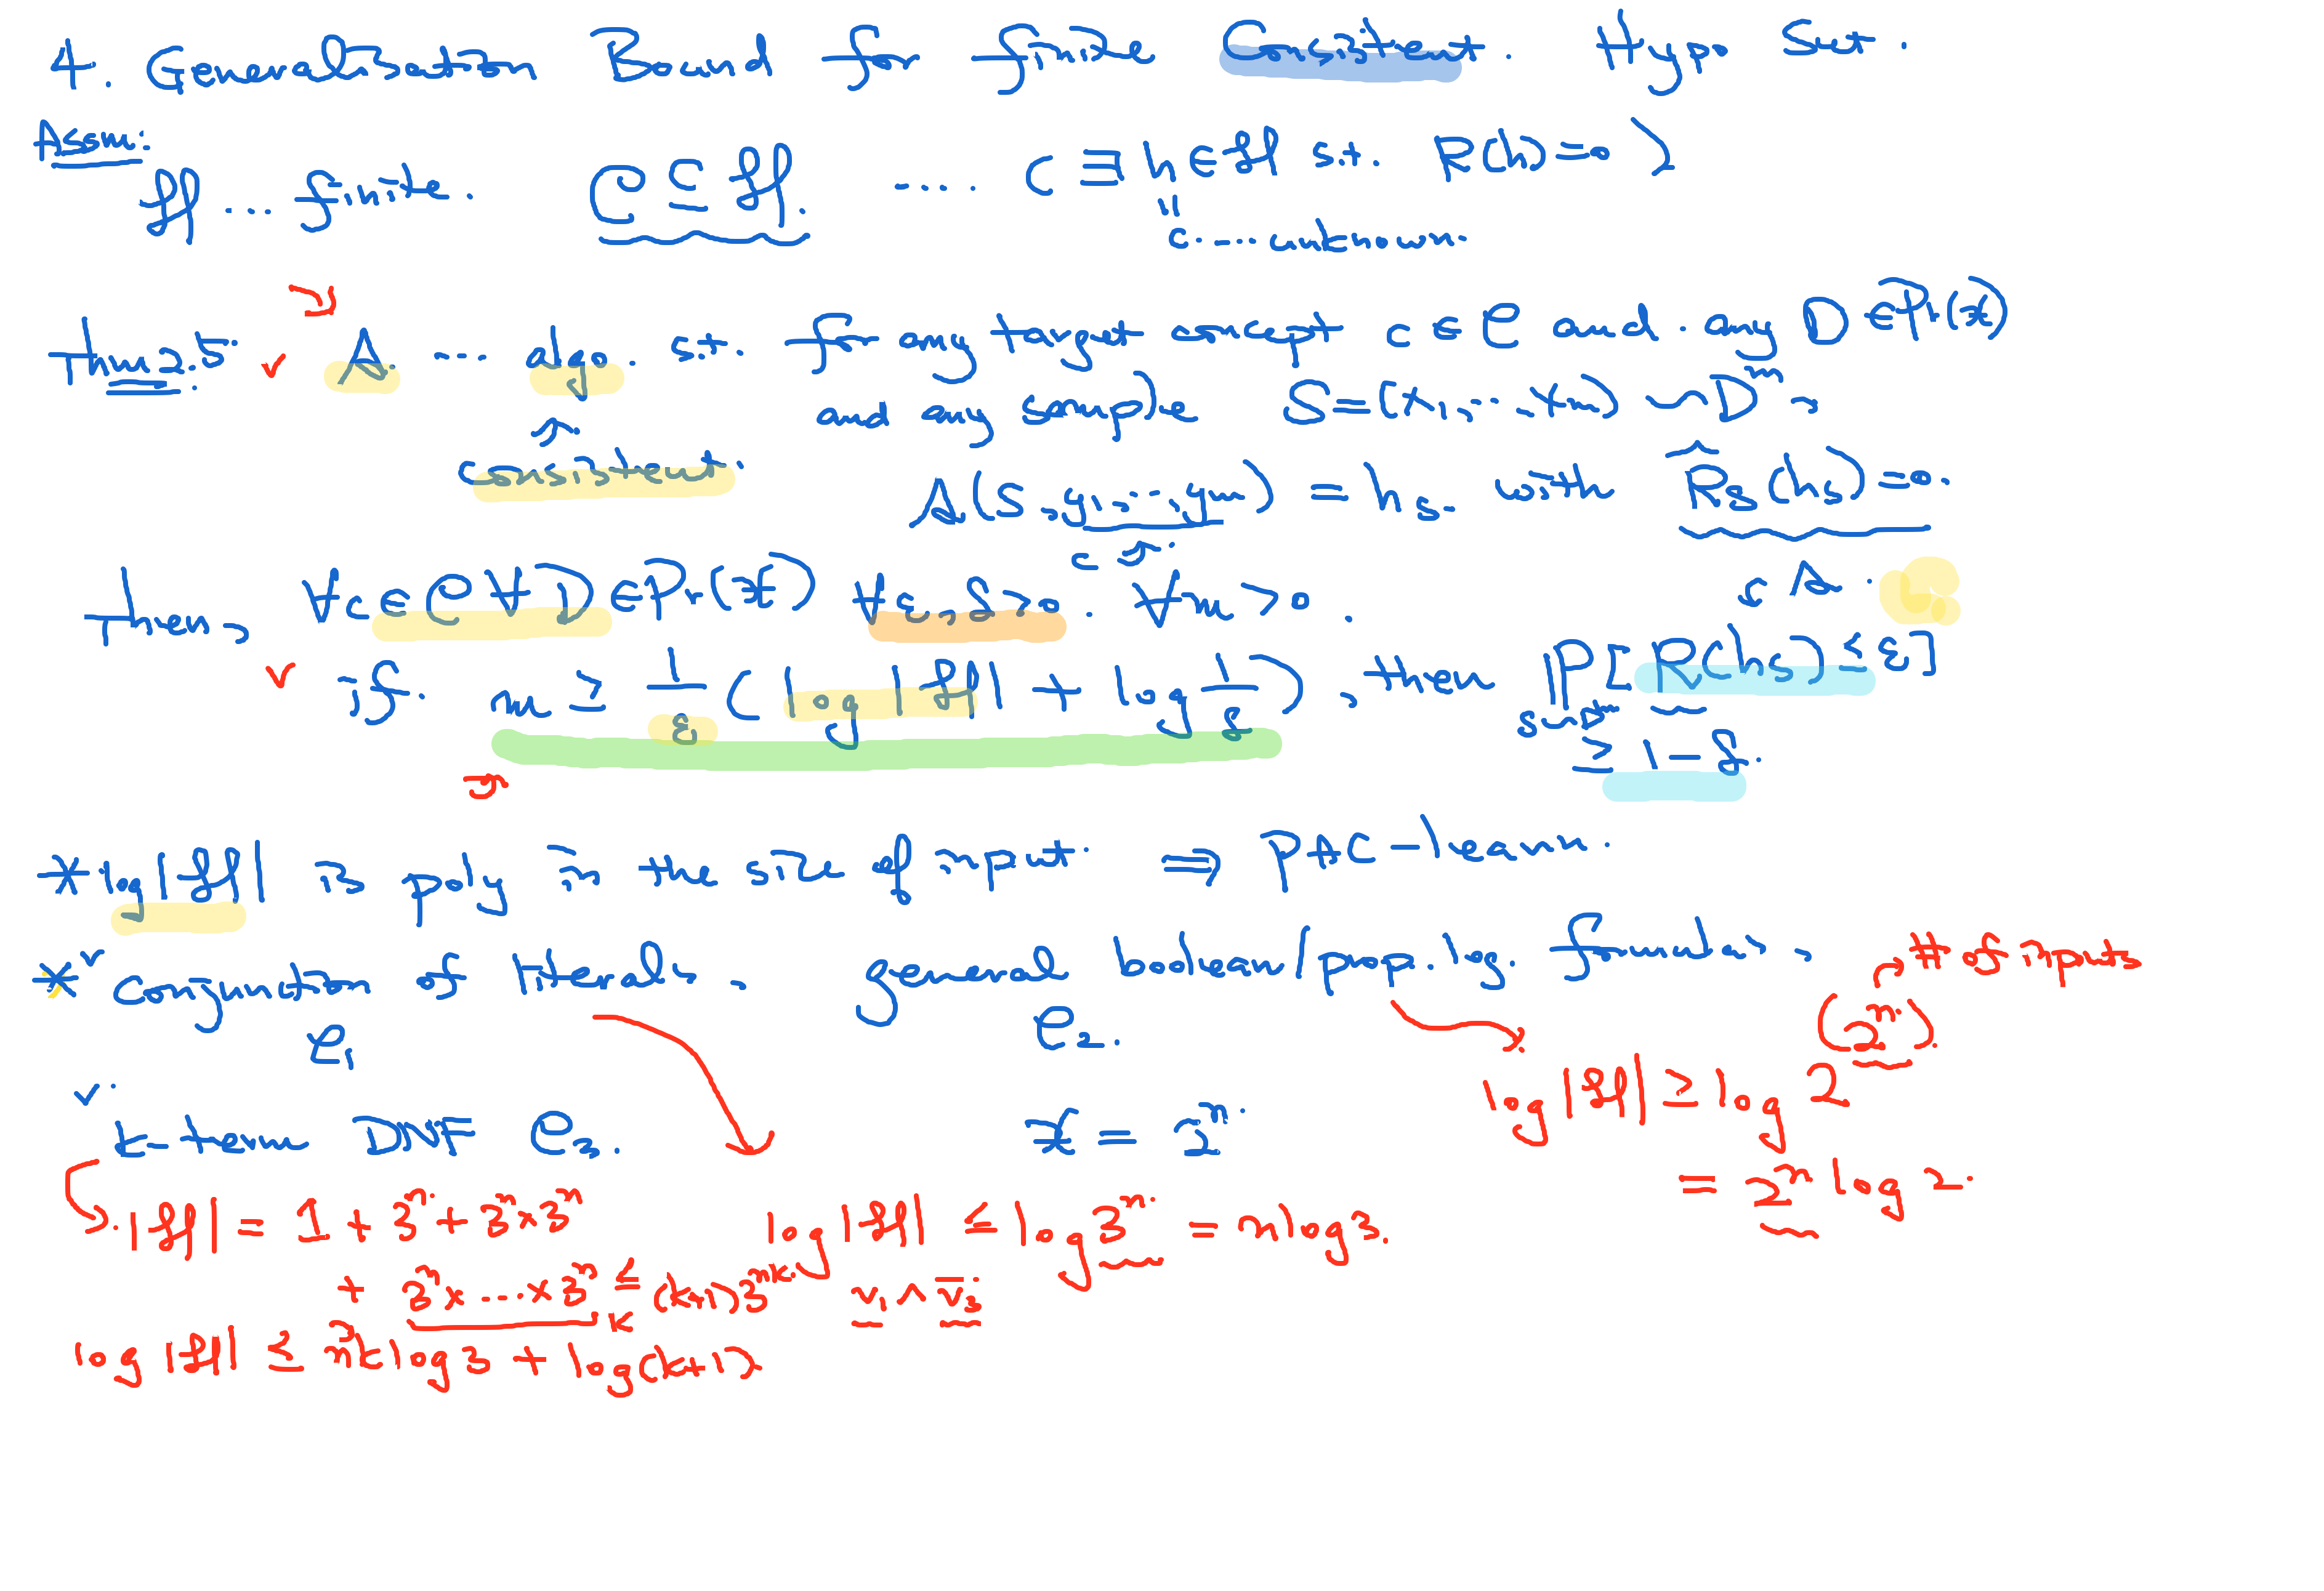 4. Generalization Bound for finite Consistent. Hypo Set.
Assum:
H ... finite. C ⊆ H. .... c ≡ h ∈ H s.t. R(h)=0
c .... unknown.
Thm 2.5: A ... algo. s.t. for any target concept c ∈ C and any D ∈ Pr(X)
and any sample S=(x1, ..., xm) ~ D^m,
consistent.
A(S, y1, ..., ym) = hs. with R̂s(hs)=0.
c
Then, ∀c∈C ∀D∈Pr(X) ∀ε,δ>0. ∀m>0.
if. m ≥ 1/ε (log|H| + log 1/δ), then P[R(hs) ≤ ε]
S~D^m
≥ 1-δ.
* log|H| is poly in the size of input ⇒ PAC-learn.
* conjunction of literals, general boolean/prop. log. formulas,
C1 C2.
# of inputs
k-term DNF C3. X = 2^n
log|H| ≥ log 2^(2^n)
= 2^n log 2.
|H| = 1 + 3^n + 3^n × 3^n
log|H| ≤ log 3^n = n log 3.
+ 3^n × .... × 3^n ≤ (k+1) 3^nk.
k
x1 ∧ x̄3
log|H| ≤ nk log 3 + log(k+1)